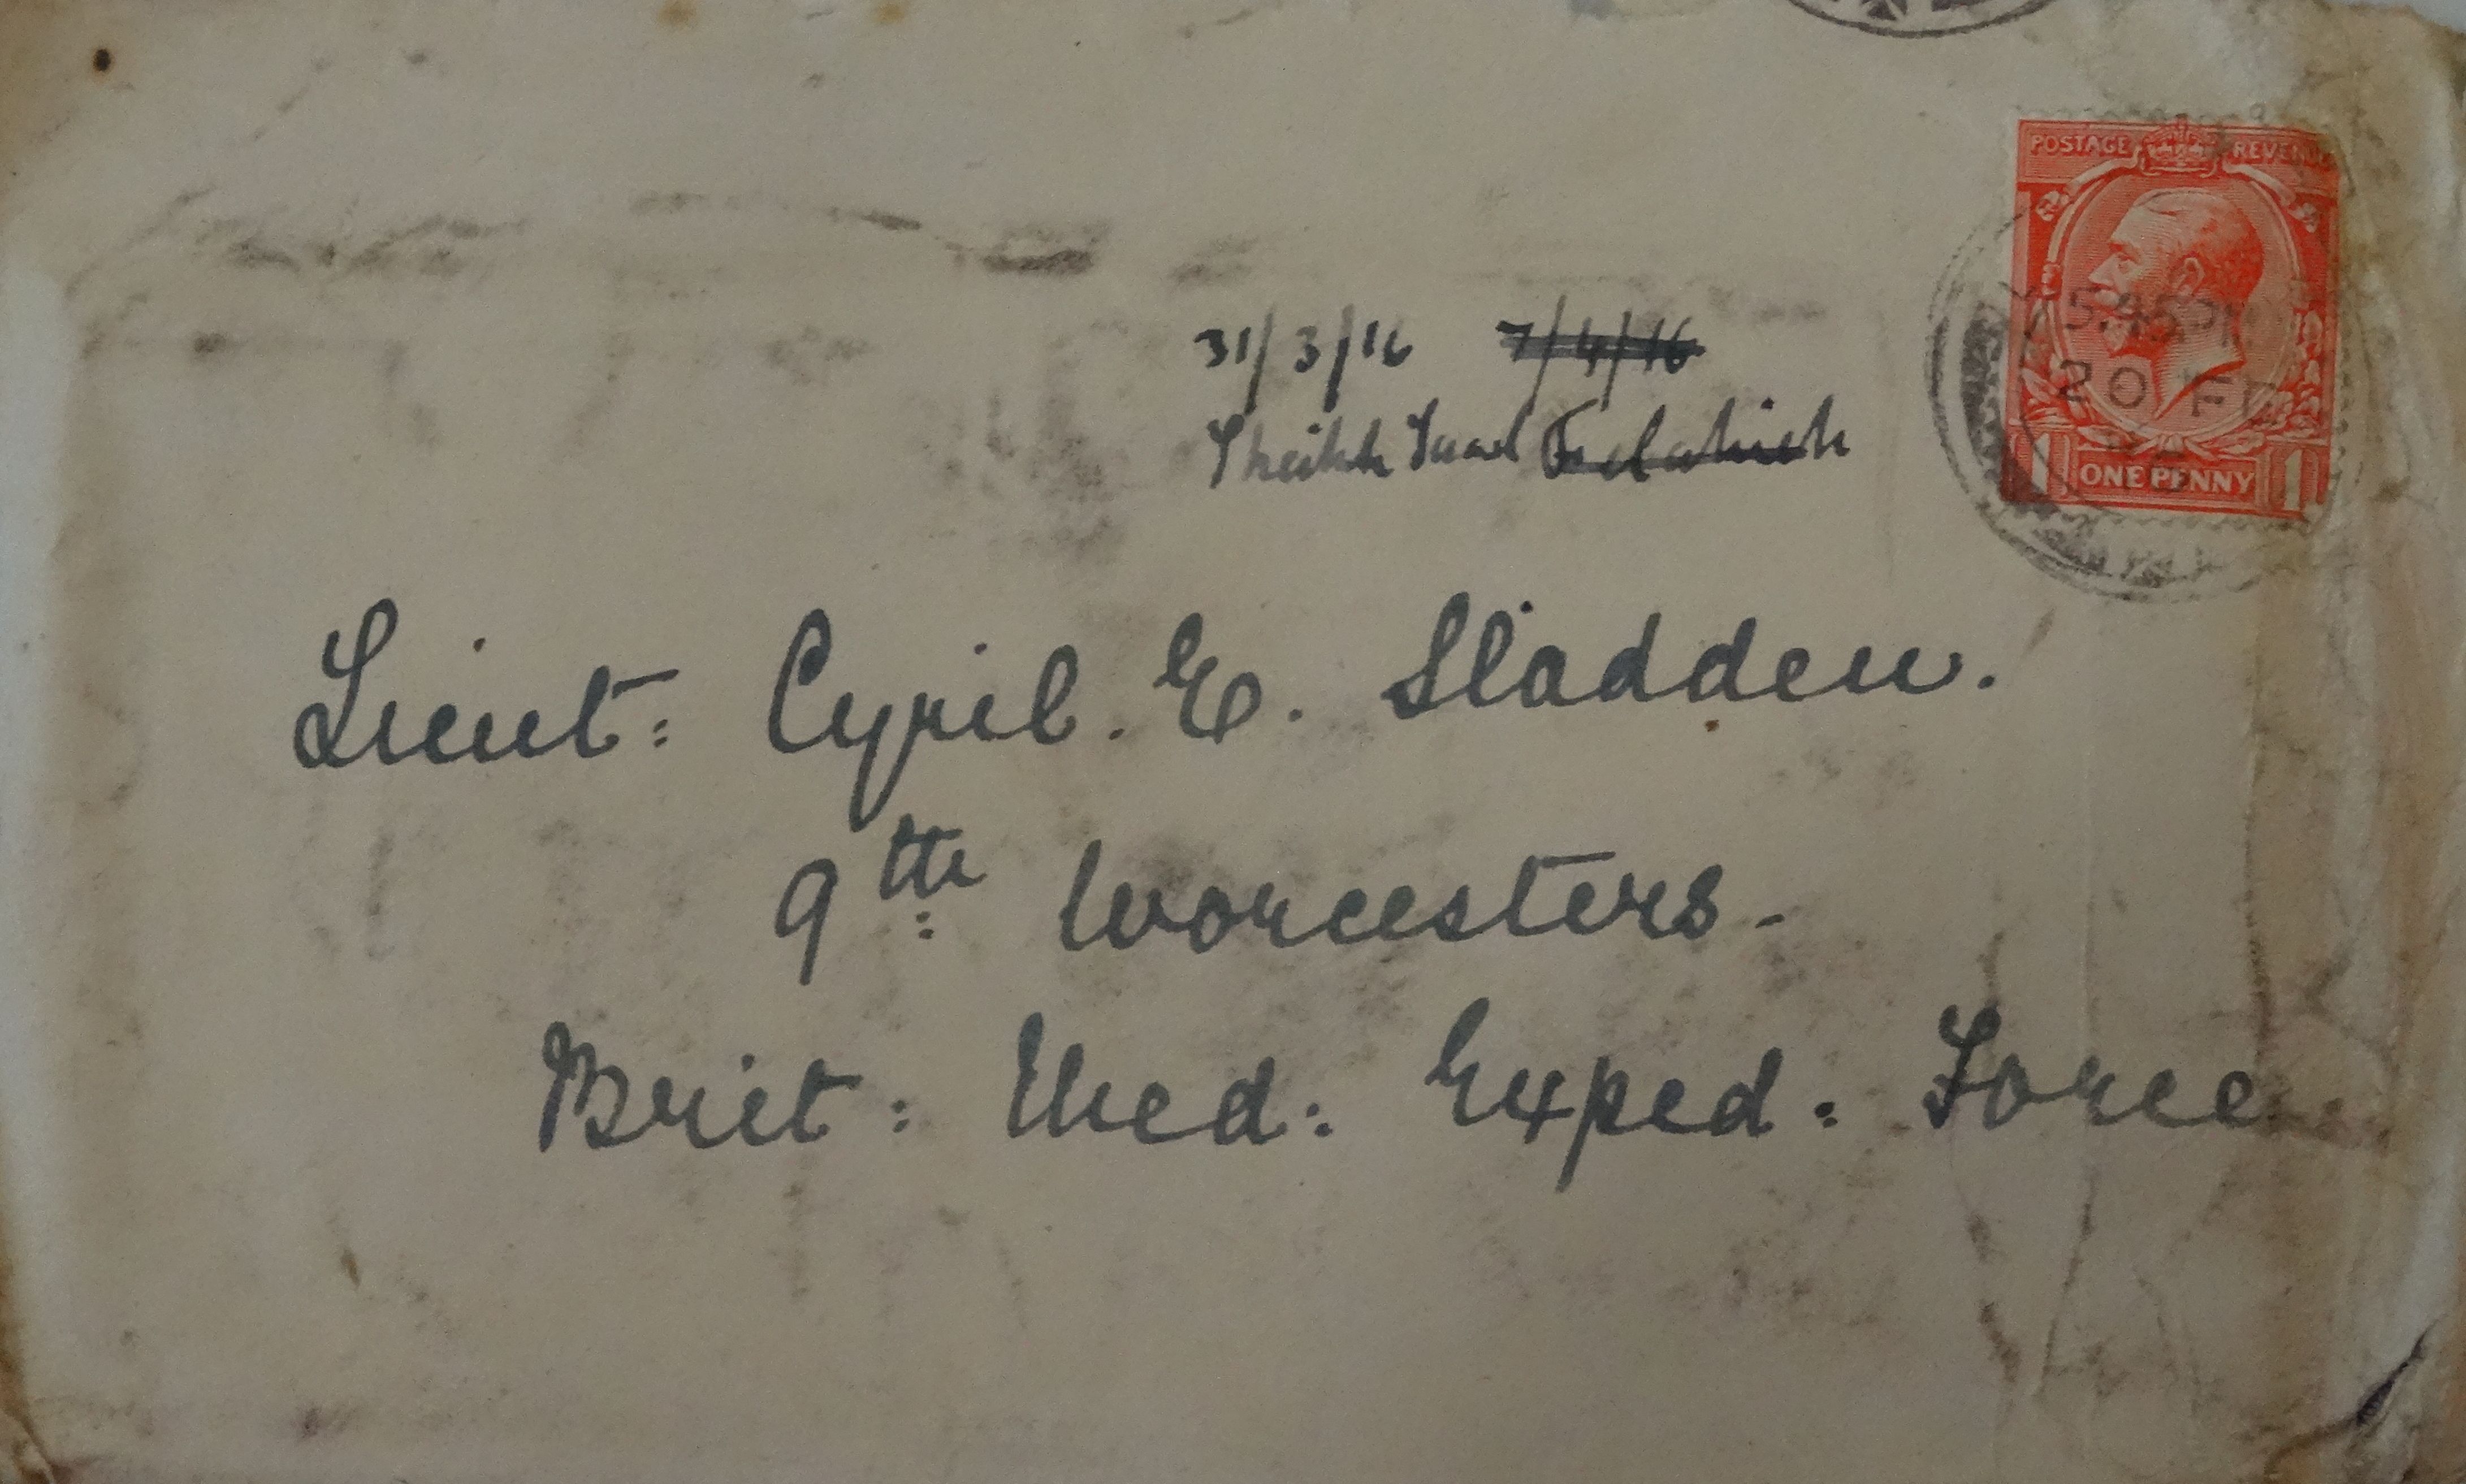 POSTAGE REVENUE
5.45 PM
20 FE
16
1 ONE PENNY 1
31/3/16 7/4/16
Sheikh Saad Felahieh
Lieut: Cyril. E. Sladden.
9th: Worcesters -
Brit: Med: Exped: Force